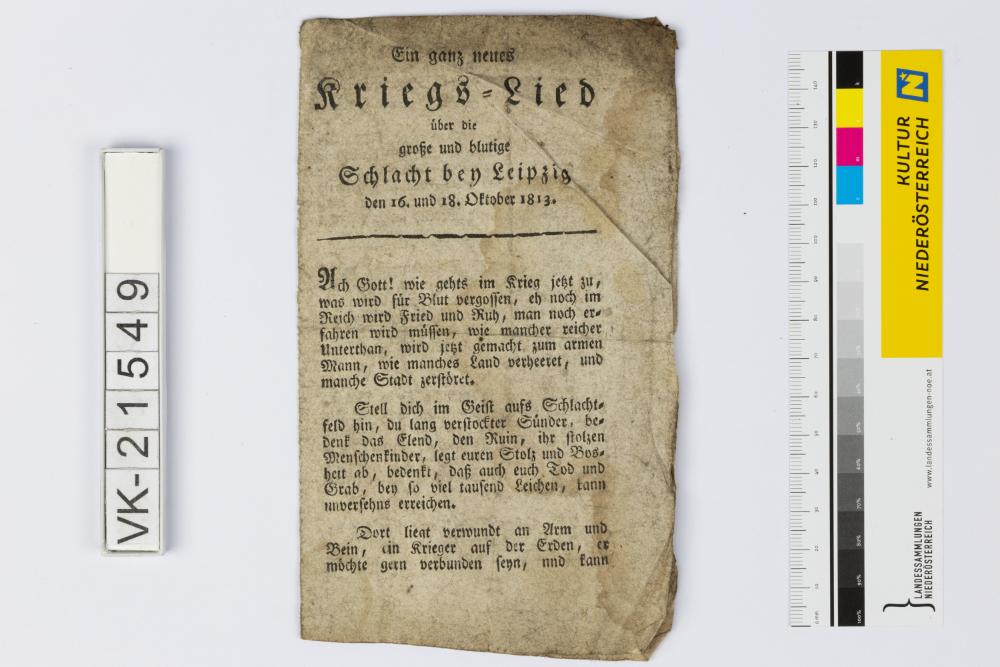 Ein ganz neues
Kriegs-Lied
über die
große und blutige
Schlacht bey Leipzig
den 16. und 18. Oktober 1813.
Ach Gott! wie gehts im Krieg jetzt zu,
was wird für Blut vergossen, eh noch im
Reich wird Fried und Ruh, man noch er-
fahren wird müssen, wie mancher reicher
Unterthan, wird jetzt gemacht zum armen
Mann, wie manches Land verheeret, und
manche Stadt zerstöret.
Stell dich im Geist aufs Schlacht-
feld hin, du lang verstockter Sünder, be-
denk das Elend, den Ruin, ihr stolzen
Menschenkinder, legt euren Stolz und Bos-
heit ab, bedenkt, daß auch euch Tod und
Grab, bey so viel tausend Leichen, kann
unversehns erreichen.
Dort liegt verwundt an Arm und
Bein, ein Krieger auf der Erden, er
möchte gern verbunden seyn, nnd kann
VK-21549
KULTUR
NIEDERÖSTERREICH
www.landessammlungen-noe.at
LANDESSAMMLUNGEN
NIEDERÖSTERREICH